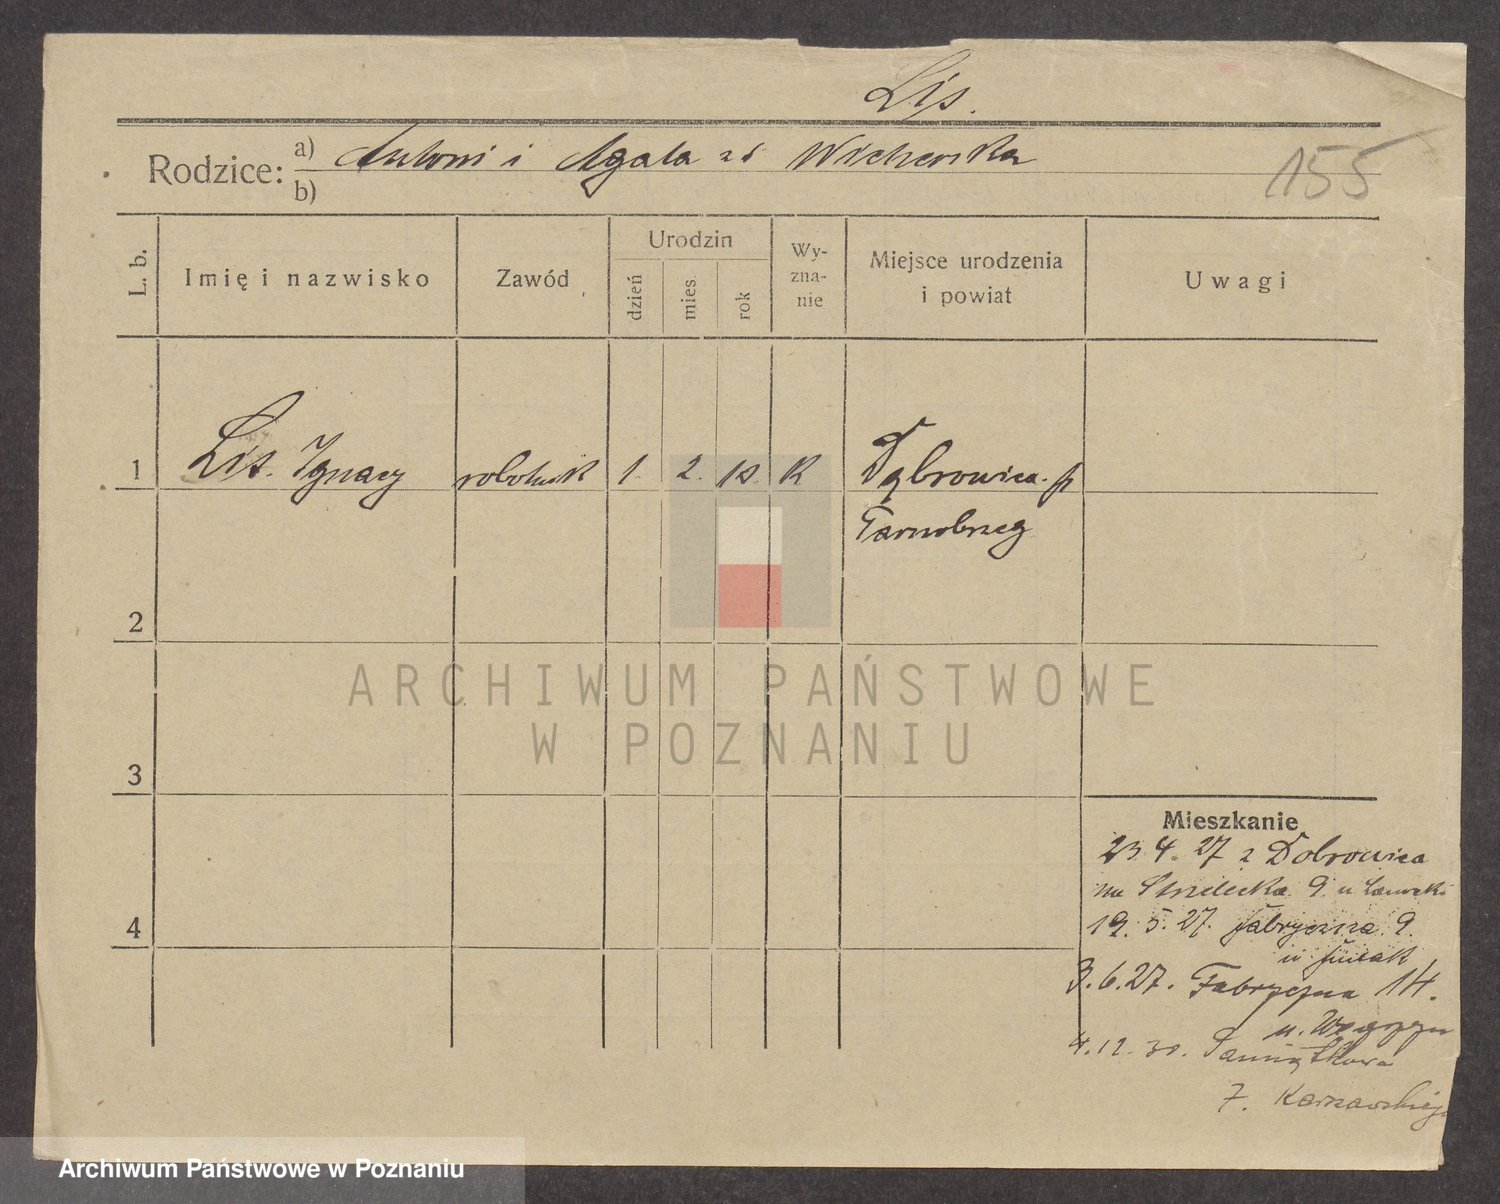 Lis.
Rodzice: a) Antoni i Agata zd
b)
155
L. b.
Imię i nazwisko
Zawód
Urodzin
dzień
mies.
rok
Wy-
zna-
nie
Miejsce urodzenia
i powiat
Uwagi
1 Lis. Ignacy robotnik 1. 2. K Dąbrowica. p
Tarnobrzeg
2
3
4
Mieszkanie
23 4. 27 z Dobrowica
na Strzelecka 9 u
19. 5. 27. fabryczna 9.
u
3. 6. 27. Fabryczna 14.
u.
4. 12. 30. Pamiątkowa
7.
ARCHIWUM PAŃSTWOWE
W POZNANIU
Archiwum Państwowe w Poznaniu